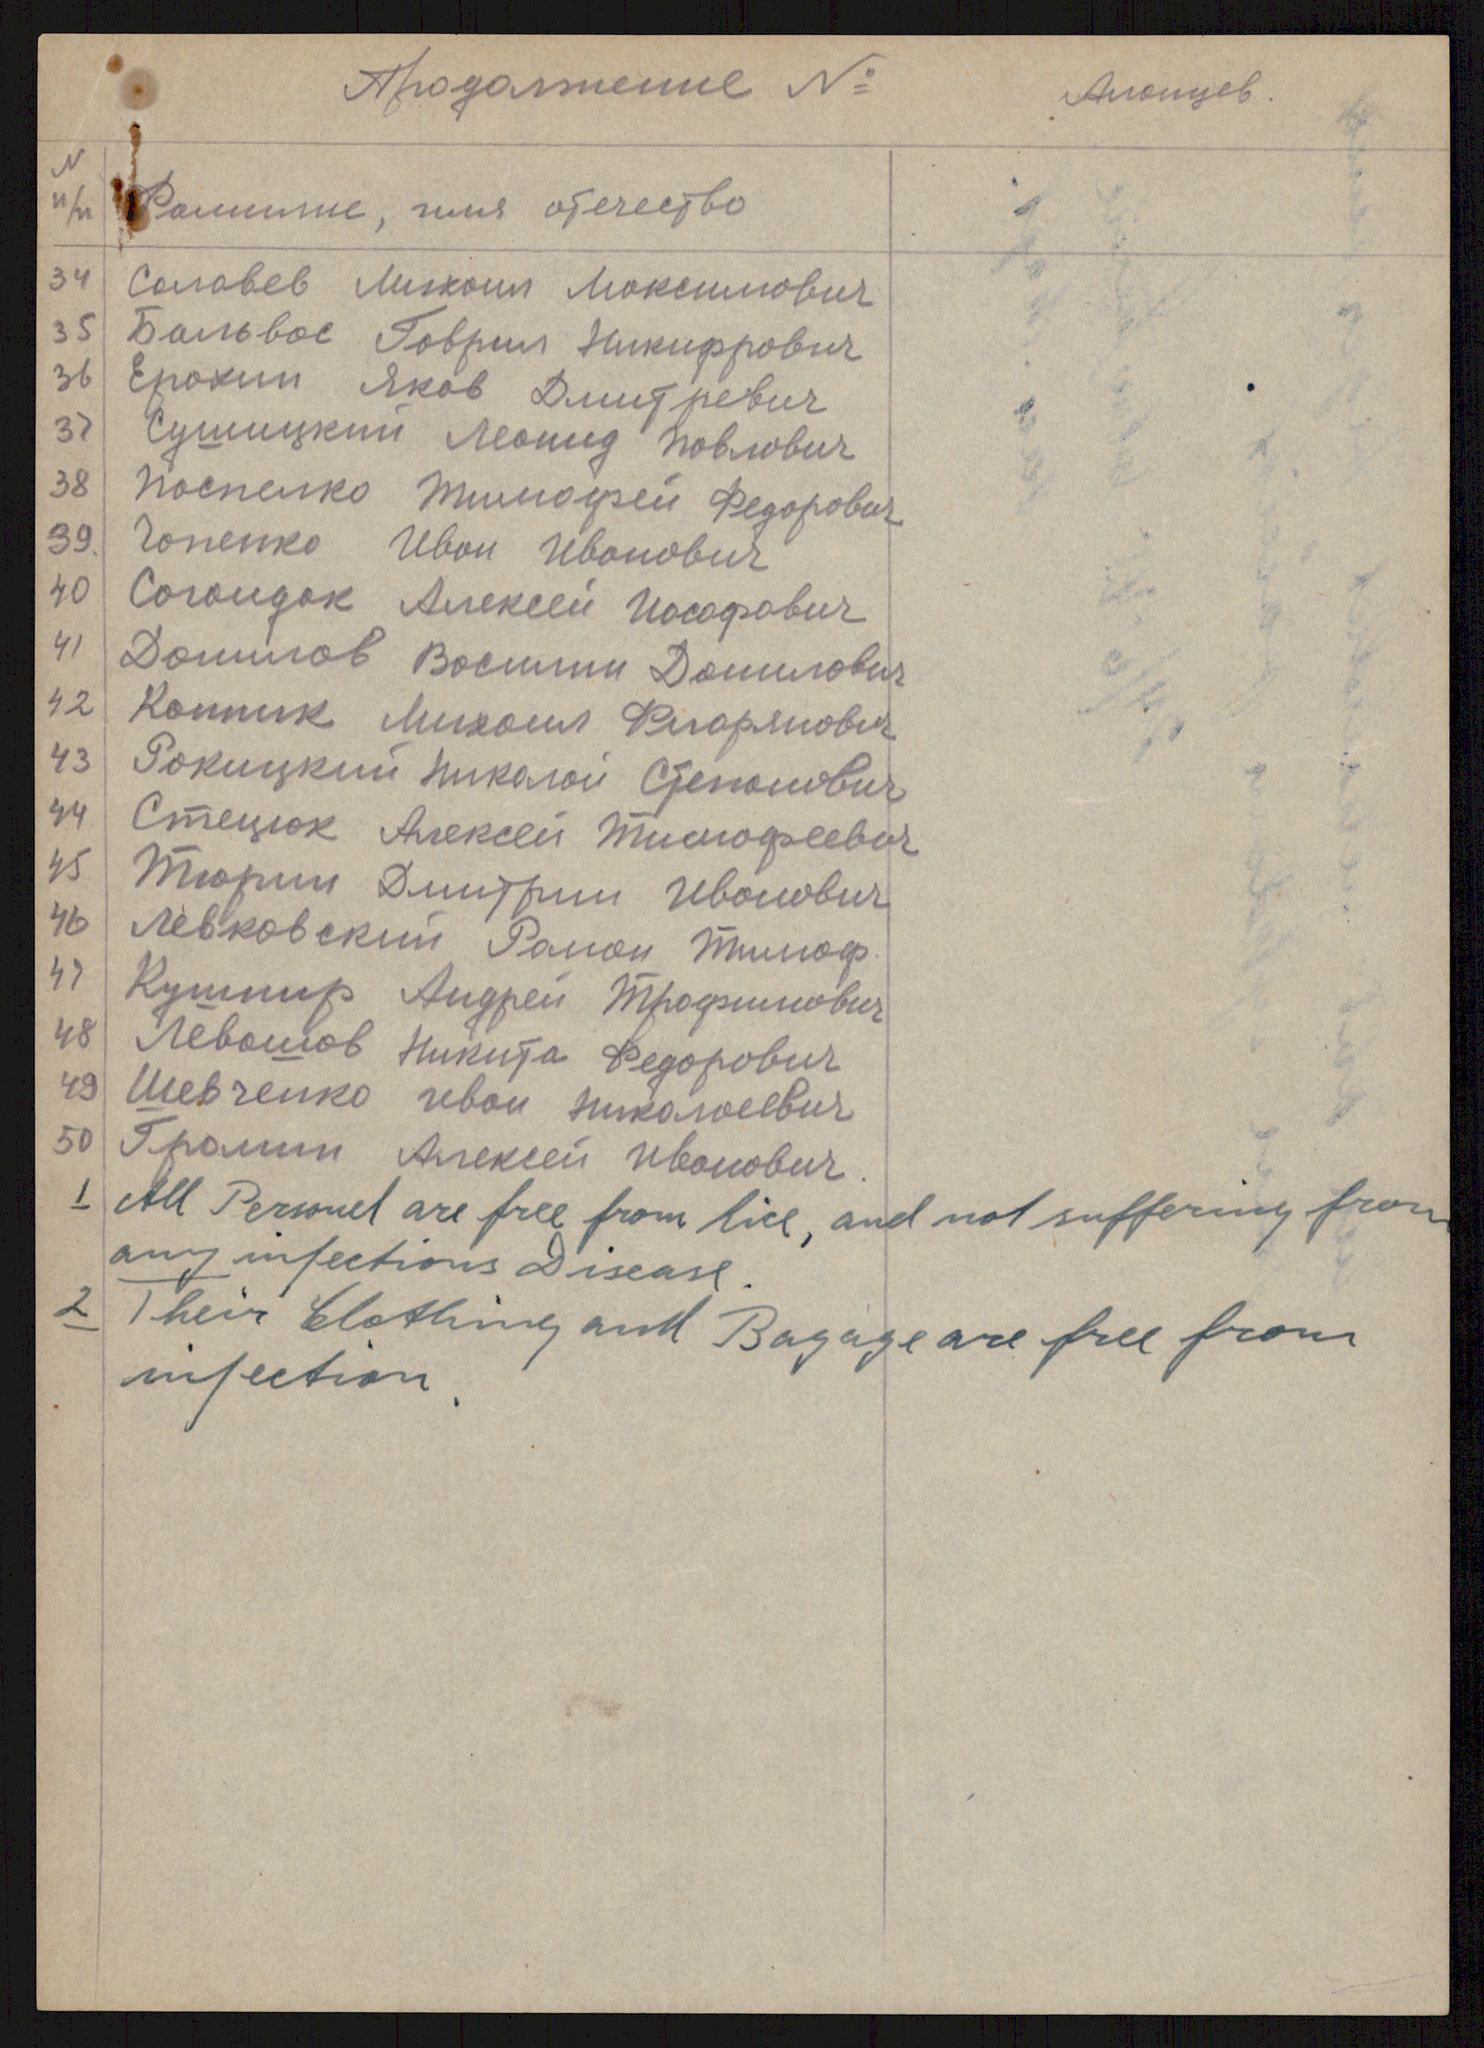 Продолжение №
Алопцев.
N п/п Фамилие, имя отчество
34 Соловев Михаил Максимович
35 Бальвас Гаврил Никифрович
36 Ерохин Яков Дмитревич
37 Сушицкий Леонид Павлович
38 Паспелко Тимофей Федорович
39. Чопенко Иван Иванович
40 Согандак Алексей Иосафович
41 Данилов Василии Данилович
42 Копник Михаил Флорянович
43 Рокицкий Николай Степанович
44 Стецюк Алексей Тимофеевич
45 Тюрин Дмитрии Иванович
46 Левковский Раман Тимоф.
47 Кушнир Андрей Трофимович
48 Левашов Никита Федорович
49 Шевченко Иван Николаевич
50 Громин Алексей Иванович.
1 All Personel are free from lice, and not suffering from
any infectious Disease.
2 Their Clothing and Bagage are free from
infection.